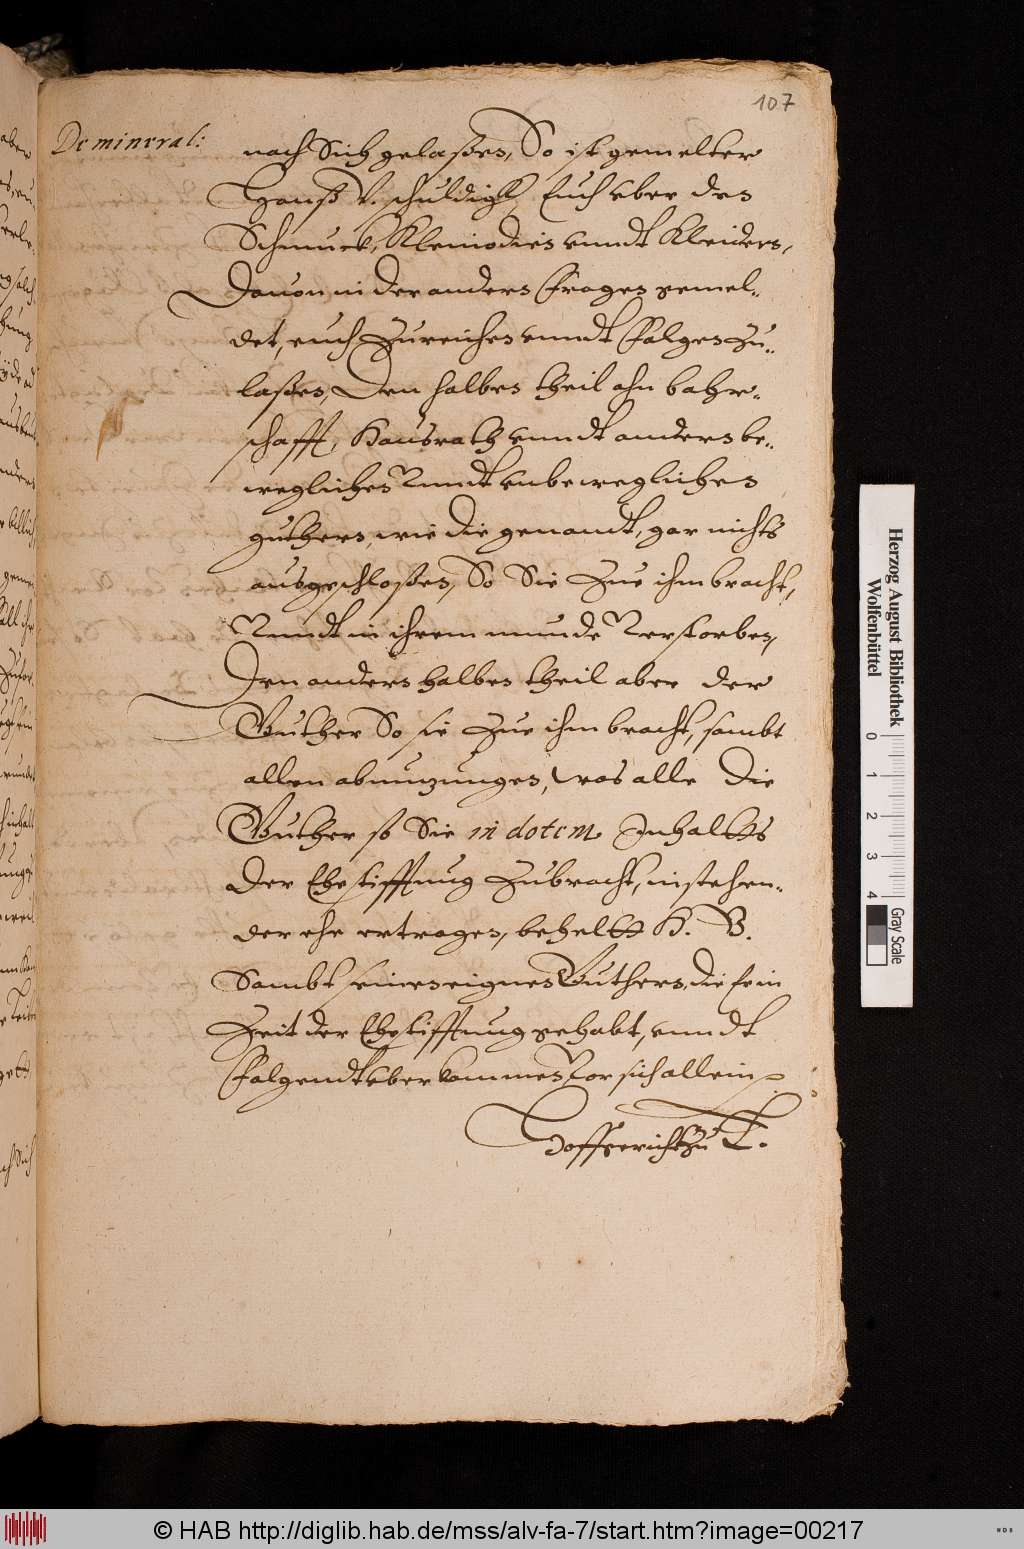 107
De mineral:
nach Sich gelaßen, So ist gemelter
Hanß V. schuldigk, Euch uber den
Schmuck, Kleinodien unndt Kleidern,
Dauon in der andern Fragen gemel-
det, auch zureichen unndt folgen zu-
laßen, Den halben theil ahn bahr-
schafft, Hausrath unndt andern be-
weglichen Vnndt unbeweglichen
guthern, wie die genandt, gar nichts
ausgeschloßen, So Sie zue ihm bracht,
Vnndt in ihrem munde Verstorben,
Den andern halben theil aber der
Guther So sie zue ihm bracht, sambt
allen abnuzungen, was alle die
Guther so Sie in dotem Inhalts
der Ehestifftung zubracht, in stehen-
der ehe ertragen, behelt H. V.
Sambt seinen eignen Guthern, die Er in
Zeit der Ehestifftung gehabt, unndt
folgendt uberkommen Vor sich allein
Hoffgericht zu
Herzog August Bibliothek
Wolfenbüttel
0 1 2 3 4
Gray Scale
© HAB http://diglib.hab.de/mss/alv-fa-7/start.htm?image=00217